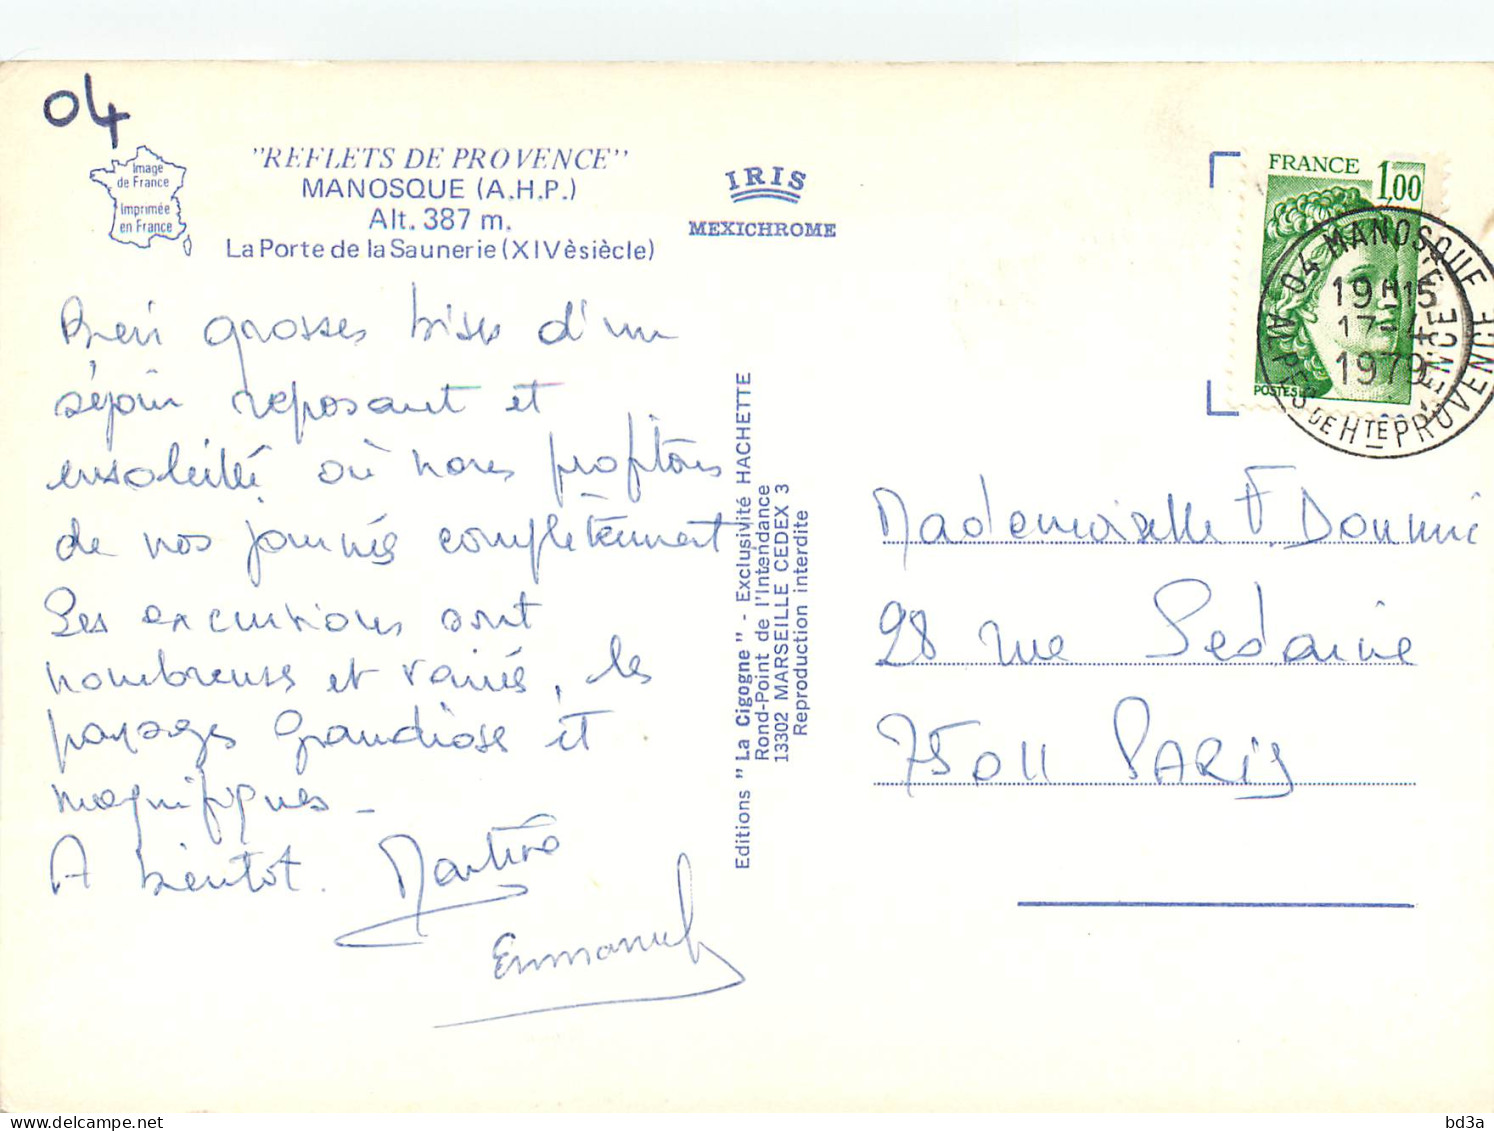 04
Image
de France
Imprimée
en France
"REFLETS DE PROVENCE"
MANOSQUE (A.H.P.)
Alt. 387 m.
La Porte de la Saunerie (XIVè siècle)
IRIS
MEXICHROME
FRANCE 1,00
POSTES
04 MANOSQUE
19H15
17-4
1979
ALPES DE HTE PROVENCE
Bien grosses bises d'un
séjour reposant et
ensoleillé où nous profitons
de nos journées complètement
Les excursions sont
nombreuses et variés, les
paysages grandioses et
magnifiques -
A bientôt. Martine
Emmanuel
Editions "La Cigogne" - Exclusivité HACHETTE
Rond-Point de l'Intendance
13302 MARSEILLE CEDEX 3
Reproduction interdite
Mademoiselle F. Doumic
28 rue Sedaine
75011 PARIS
bd3a